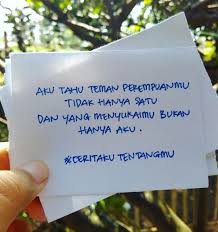 AKU TAHU TEMAN PEREMPUANMU
TIDAK HANYA SATU
DAN YANG MENYUKAIMU BUKAN
HANYA AKU.
#CERITAKU TENTANGMU